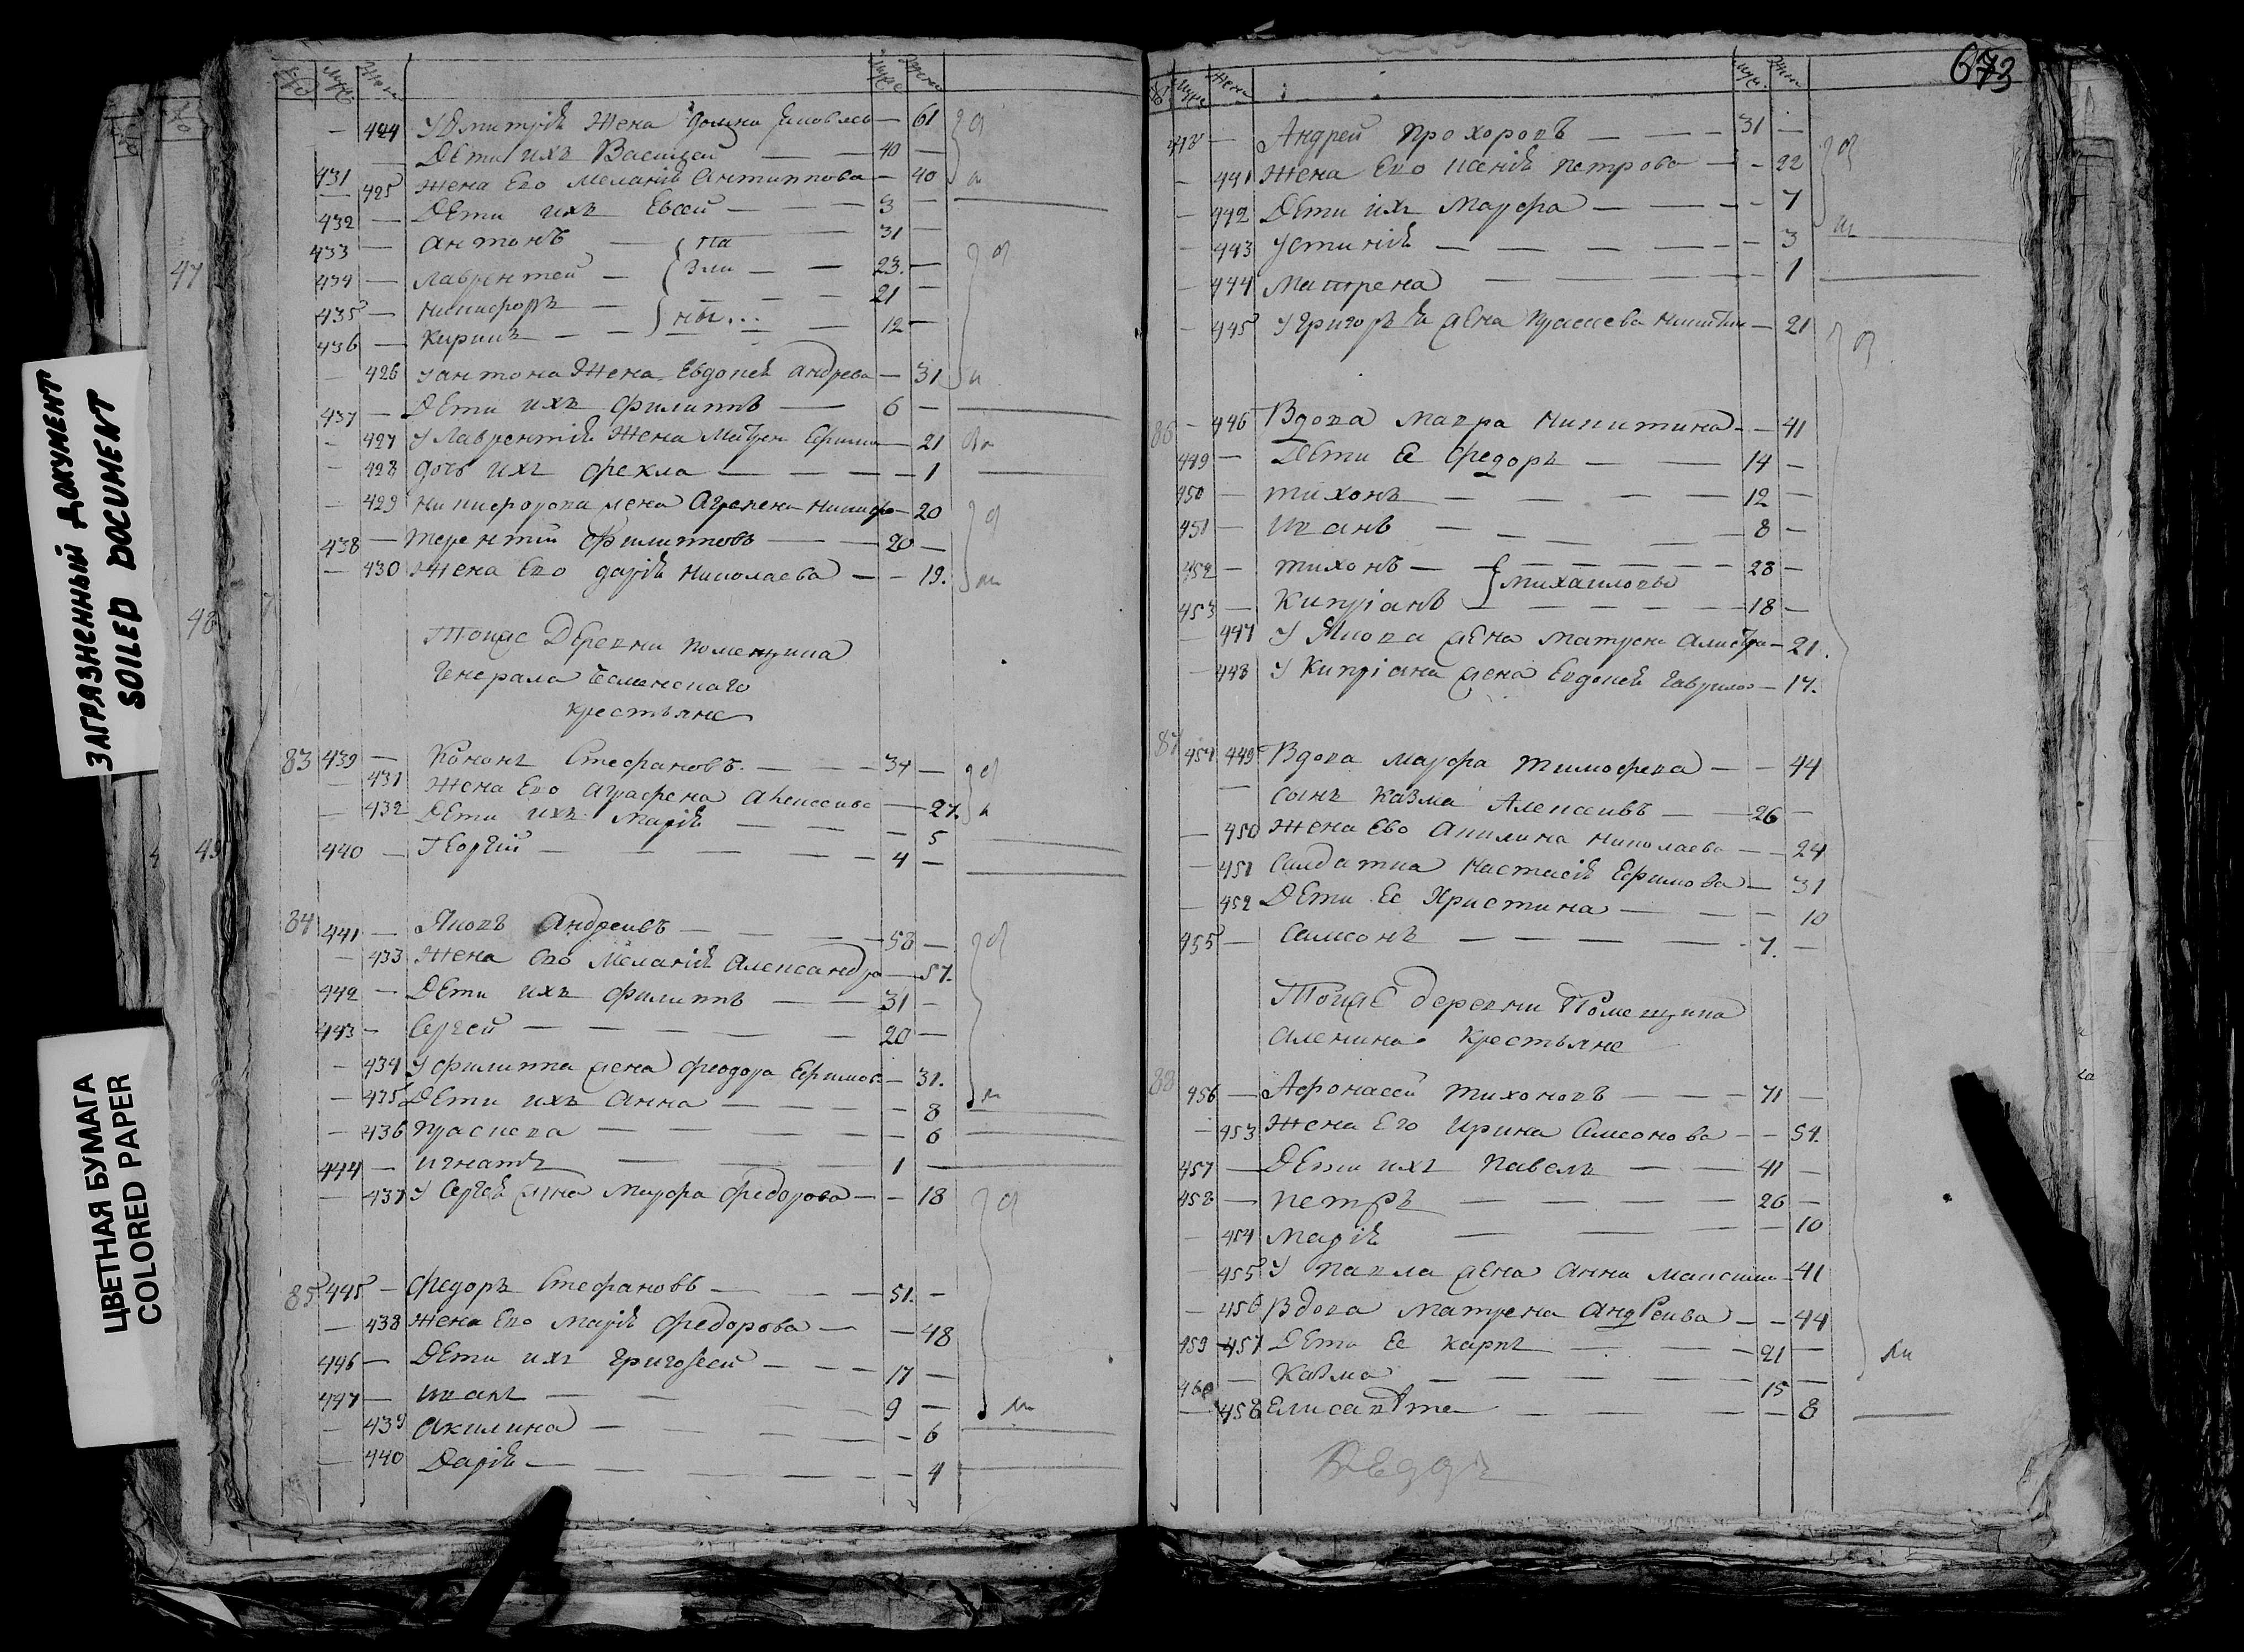 ЗАГРАЗНЕННЫЙ ДОКУМЕНТ
SOILED DOCUMENT
ЦВЕТНАЯ БУМАГА
COLORED PAPER
424 У Дмитрія Жена 61
431 Дети ихъ Василей 40
425 Жена Ево Меланія Антиппова 40
432 Дети ихъ Евсей 3
433 Антонъ Па 31
434 Лаврентей вли 23
435 Никифоръ ны 21
436 Кирилъ 12
426 У антона Жена Евдокея андрева 31
437 Дети ихъ филиппъ 6
427 У Лаврентія Жена 21
428 дочь ихъ фекла 1
429 Никифорова жена 20
438 Терентий Филипповъ 20
430 Жена Ево дарія Николаева 19
Тоиже Деревни помещика
Генерала
крестьяне
83 439 Кононъ Стефановъ 34
431 Жена Ево Аграфена Алексеива 27
432 Дети ихъ Марія 5
440 Георгій 4
84 441 Яковъ Андреивъ 58
433 Жена Ево Меланія Александр 57
442 Дети ихъ филиппъ 31
443 Сергей 20
434 У филиппа жена феодора Ефимов 31
435 Дети ихъ Анна 8
436 Праскева 6
444 игнатъ 1
437 У Сергея жена Марфа федорова 18
85 445 федоръ Стефановъ 51
438 Жена Ево Марія федорова 48
446 Дети ихъ григорей 17
447 иванъ 9
439 акилина 6
440 Дарія 4
673
448 Андрей Прохоровъ 31
441 Жена Ево Ксенія петрова 22
442 Дети ихъ Марфа 7
443 Устинія 3
444 Матрена 1
445 У григорья жена 21
86 446 Вдова Мавра Никитина 41
449 Дети Ее Федоръ 14
450 тихонъ 12
451 Иванъ 8
452 тихонъ 23
Михаиловы
453 Кипріанъ 18
447 У жена матрена 21
448 У Кипріана жена Евдокея гаврилов 17
87 454 449 Вдова марфа тимофева 44
сынъ Казма Алексеивъ 26
450 Жена Ево Акилина Николаева 24
451 Салдатка Настасія Ефимова 31
452 Дети Ее Христина 10
455 Самсонъ 7
Тоиже деревни Помещика
Аленина Крестьяне
88 456 Афонасей Тихоновъ 71
453 Жена Его Ирина Самсонова 54
457 Дети ихъ Павелъ 41
458 петръ 26
454 Марія 10
455 У павла жена Анна Максими 41
456 Вдова Матрена Андреива 44
459 457 Дети Ее карпъ 21
460 Казма 15
458 Елисавета 8